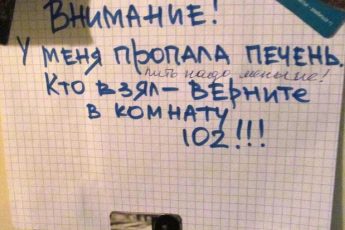 Внимание!
У меня пропала печень.
пить надо меньше!
Кто взял - верните
в комнату
102!!!